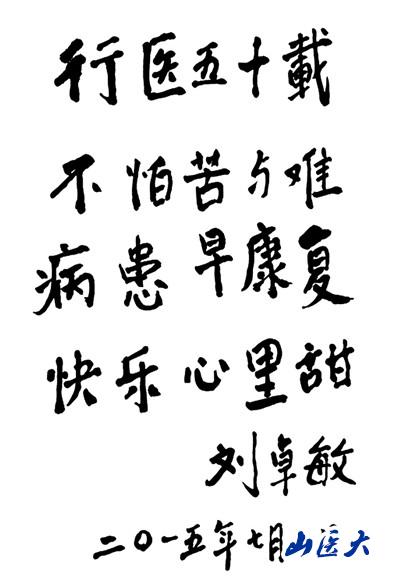 行医五十載
不怕苦与难
病患早康复
快乐心里甜
刘卓敏
二〇一五年七月
山医大